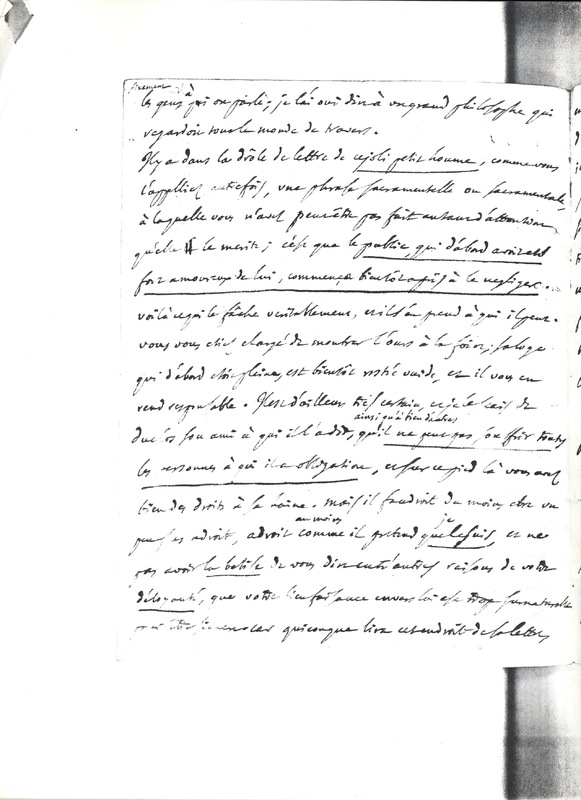 finement
les gens à qui on parle; je l'ai oui dire à un grand philosophe qui
regardoit tout le monde de travers.
Il y a dans la drôle de lettre de ce joli petit homme, comme vous
l'appelliez autrefois, une phrase sacramentelle ou sacramentale,
à laquelle vous n'avez peutêtre pas fait autant d'attention
qu'elle le merite; c'est que le public, qui d'abord avoit été
fort amoureux de lui, commença bientôt après à le negliger.
voilà ce qui le fâche veritablement, et il s'en prend à qui il peut.
vous vous etiez chargé de montrer l'ours à la foire; sa loge
qui d'abord étoit pleine, est bientôt restée vuide, et il vous en
rend responsable. Il est d'ailleurs très certain, et je le sais de
ainsi qu'à bien d'autres
Duclos son ami à qui il l'a dit, qu'il ne peut pas souffrir toutes
les personnes à qui il a obligation, et sur ce pied là vous avez
bien des droits à sa haine. mais il faudroit du moins être un
au moins je
peu plus adroit, adroit comme il pretend que le suis, et ne
pas avoir la bêtise de vous dire entr'autres raisons de votre
déloyauté, que votre bienfaisance envers lui est trop surnaturelle
car quiconque lira cet endroit de sa lettre,